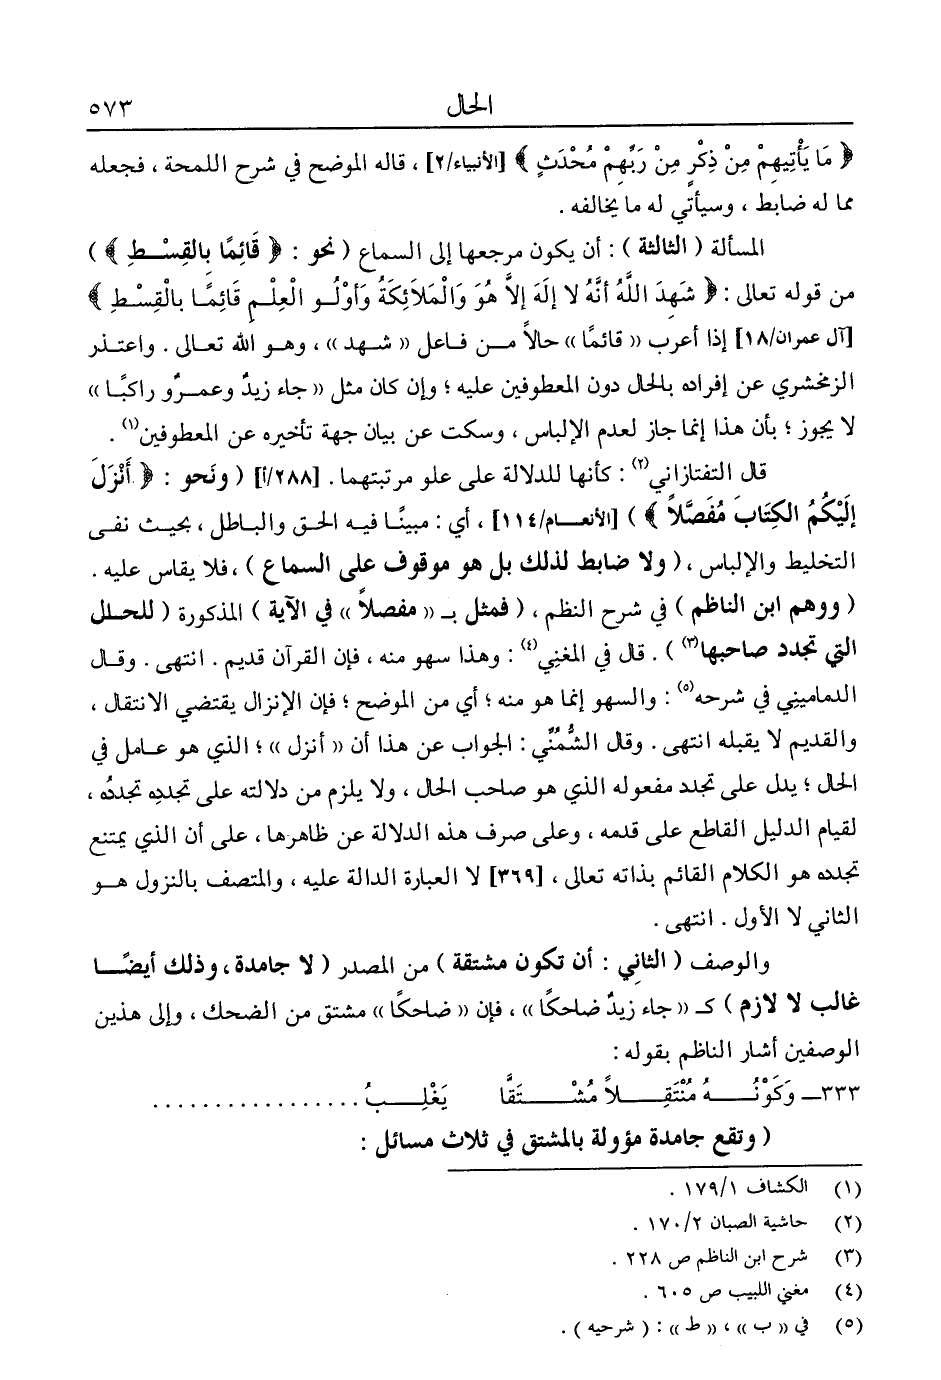 الحال ٥٧٣
﴿ مَا يَأْتِيهِمْ مِنْ ذِكْرٍ مِنْ رَبِّهِمْ مُحْدَثٍ ﴾ [الأنبياء/٢] ، قاله الموضح في شرح اللمحة ، فجعله
مما له ضابط ، وسيأتي له ما يخالفه .
المسألة ( الثالثة ) : أن يكون مرجعها إلى السماع ( نحو : ﴿ قَائِمًا بِالقِسْـطِ ﴾ )
من قوله تعالى : ﴿ شَهِدَ اللَّهُ أنَّهُ لا إلَهَ إلاَّ هُوَ وَالْمَلاَئِكَةُ وَأوْلُـو الْعِلْـمِ قَائِمًـا بالْقِسْـطِ ﴾
[آل عمران/١٨] إذا أعرب « قائمًا» حالاً مـن فـاعل « شـهد» ، وهـو الله تعـالى . واعتـذر
الزمخشري عن إفراده بالحال دون المعطوفين عليه ؛ وإن كان مثل « جاء زيدٌ وعمـرٌو راكبًـا »
لا يجوز ؛ بأن هذا إنما جاز لعدم الإلباس ، وسكت عن بيان جهة تأخيره عن المعطوفين(١) .
قال التفتازاني(٢) : كأنها للدلالة على علو مرتبتهما . [٢٨٨/أ] ( ونَحو : ﴿ أَنْزَلَ
إلَيْكُمُ الكِتَابَ مُفَصَّلاً ﴾ ) [الأنعـام/١١٤] ، أي : مبينًـا فيـه الحـق والبـاطل ، بحيـث نفـى
التخليط والإلباس ، ( ولا ضابط لذلك بل هو موقوف على السماع ) ، فلا يقاس عليه .
( ووهم ابن الناظم ) في شرح النظم ، ( فمثل بـ « مفصلاً » في الآية ) المذكورة ( للحـال
التي تجدد صاحبها(٣) ) . قال في المغني(٤) : وهذا سهو منه ، فإن القرآن قديم . انتهى . وقـال
الدماميني في شرحه(٥) : والسهو إنما هو منه ؛ أي من الموضح ؛ فإن الإنزال يقتضي الانتقال ،
والقديم لا يقبله انتهى . وقال الشُّمُنِّي : الجواب عن هذا أن « أنزل » ؛ الذي هو عـامل في
الحال ؛ يدل على تجدد مفعوله الذي هو صاحب الحال ، ولا يلزم من دلالته على تجددِه تجددُه ،
لقيام الدليل القاطع على قدمه ، وعلى صرف هذه الدلالة عن ظاهرها ، على أن الذي يمتنع
تجدده هو الكلام القائم بذاته تعالى ، [٣٦٩] لا العبارة الدالة عليه ، والمتصف بالنزول هـو
الثاني لا الأول . انتهى .
والوصف ( الثاني : أن تكون مشتقة ) من المصدر ( لا جامدة ، وذلك أيضًـا
غالب لا لازم ) كـ « جاء زيدٌ ضاحكًا» ، فإن « ضاحكًا» مشتق من الضحك ، وإلى هذين
الوصفين أشار الناظم بقوله :
٣٣٣ـ وَكَوْنُـــهُ مُنْتَقِـــلاً مُشْـــتَقًّا يَغْلِـــبُ . . . . . . . . . . . . . . . . .
( وتقع جامدة مؤولة بالمشتق في ثلاث مسائل :
(١) الكشاف ١٧٩/١ .
(٢) حاشية الصبان ١٧٠/٢ .
(٣) شرح ابن الناظم ص ٢٢٨ .
(٤) مغني اللبيب ص ٦٠٥ .
(٥) في « ب » ، « ط » : ( شرحيه ) .